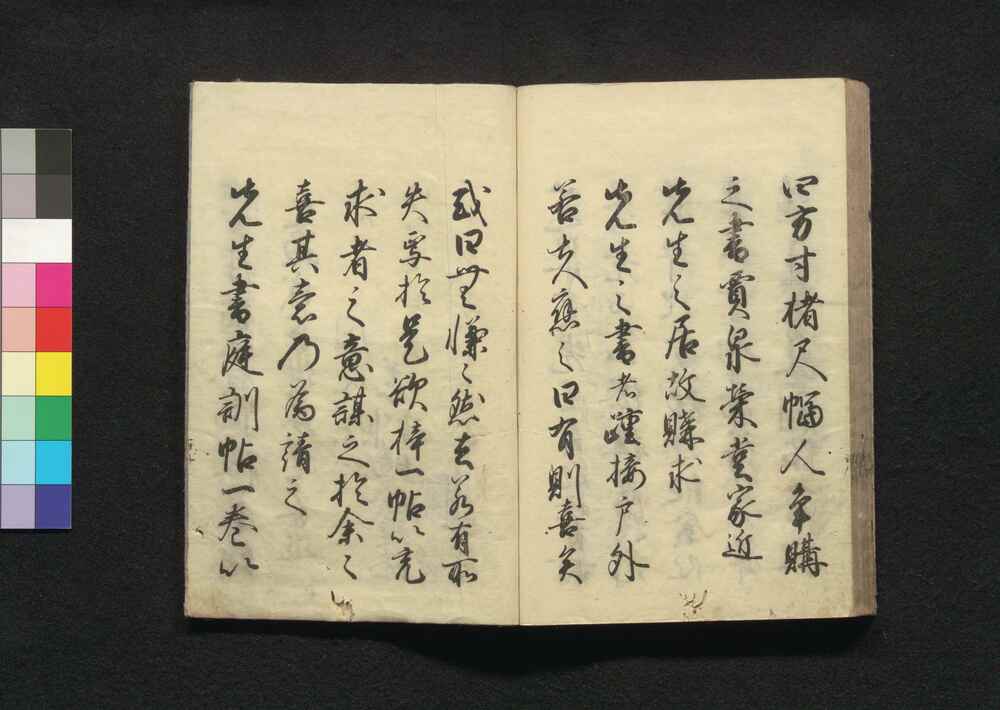 四方寸楮尺幅人争購
之書賈泉榮堂家近
先生之居故賺求
先生之書者踵接戸外
若夫人應之曰有則喜矣
或曰無慊々然去若有所
失焉於是欲梓一帖以充
求者之意謀之於余々
喜其志乃為請之
先生書庭訓帖一巻以